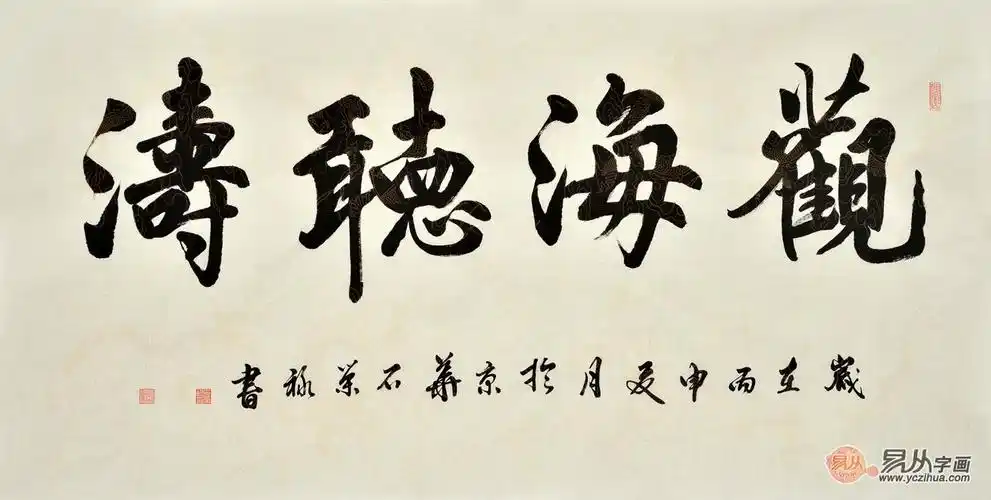 觀海聽濤
歲在丙申夏月於京華石榮祿書
易从
易从字画
www.yczihua.com